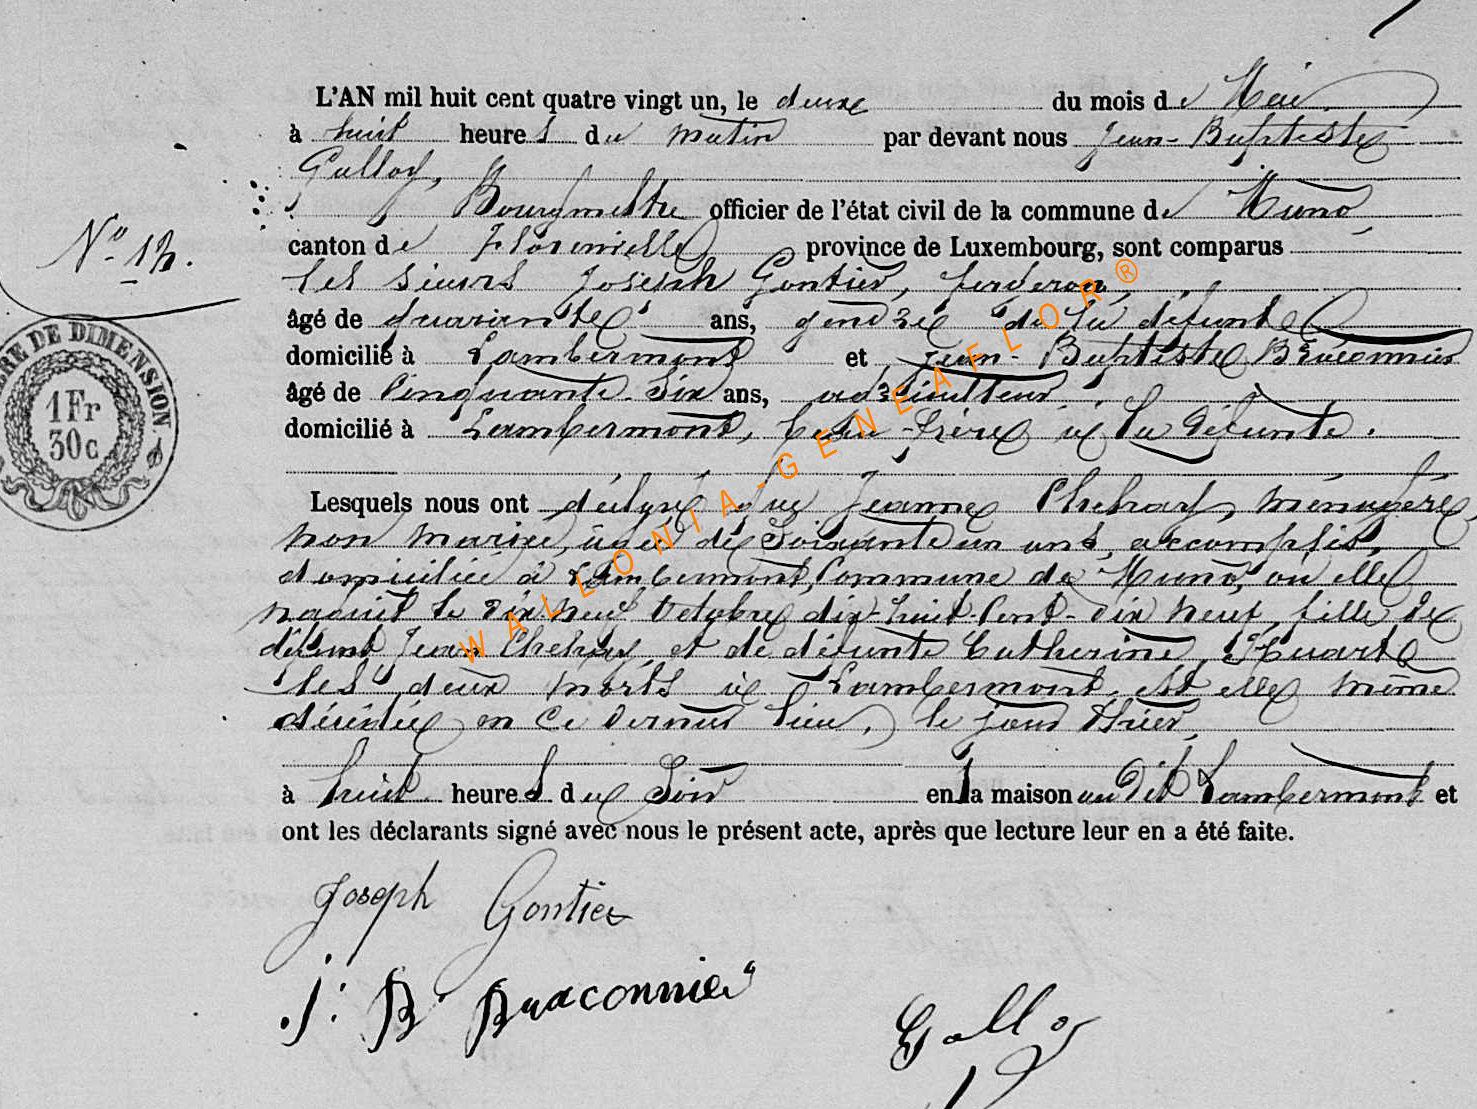 L'AN mil huit cent quatre vingt un, le deux du mois de Mai
à huit heures du matin par devant nous Jean-Baptiste
Galloy,
Bourgmestre officier de l'état civil de la commune de Muno,
canton de Florenville province de Luxembourg, sont comparus
les sieurs Joseph Gontier, forgeron,
âgé de quarante ans, gendre de la défunte
domicilié à Lambermont et Jean-Baptiste Braconnier
âgé de Cinquante Six ans, agriculteur
domicilié à Lambermont, beau-frère à la défunte.
Lesquels nous ont déclaré que Jeanne ménagère,
non mariée, âgée de Soixante un ans accomplis,
domiciliée à Lambermont, Commune de Muno, où elle
naquit le dix neuf Octobre dix-huit-Cent-dix neuf, fille de
défunt Jean et de défunte Catherine Huart
les deux morts à Lambermont, est elle même
décédée en ce dernier lieu, le jour d'hier,
à huit heures du Soir en la maison au dit Lambermont et
ont les déclarants signé avec nous le présent acte, après que lecture leur en a été faite.
Nº 12.
BRE DE DIMENSION
1Fr
30c
Joseph Gontier
J. B. Braconnier
Galloy
WALLONIA-GENEAFLOR®